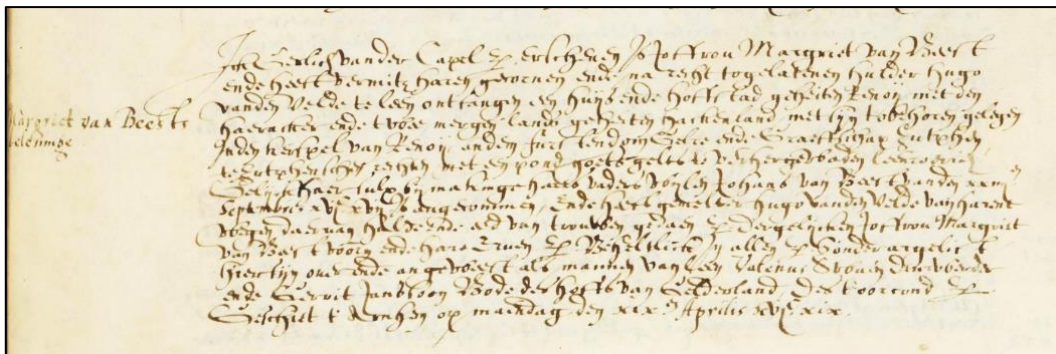 Margriet van Beests
beleninge
Ick Gerlich vander Capel &c. Erschenen is Joffrou Margriet van Beest
ende heeft vermitz haren gecornen ende na recht togelatenen hulder Hugo
vanden Velde te leen ontfangen een huys ende hoffstad geheiten Renoy met den
haeracker ende twee mergen lands geheiten hackenland met sijn tobehoren gelegen
Inden kerspel van Renoy, anden furstendom Gelre ende Graeffschap Zutphen
te Zutphenschen rechten met een pond goets gelts te verhergewaden leenroerich
Gelijck haer sulx bij makinge haers vaders wijlen Johans van Beest vanden xxiii en
Septembris xvjC xvij is angecommen, Ende heeft gemelter Hugo vanden Velde van harent
wegen daervan hulde ende eed van trouwen gedaen &c. Dergelijcken Joffrou Margriet
van Beest voors. ende hare Erven &c. Beheltlich In allen &c. Sonder argelist
hier sijn over ende an geweest als mannen van leen
ende Gerrit Jansloon Bode des hoffs van Gelderland Des t'oorcond &c.
Geschiet t'Arnhem op maendag den xix en Aprilis xvjC xix.